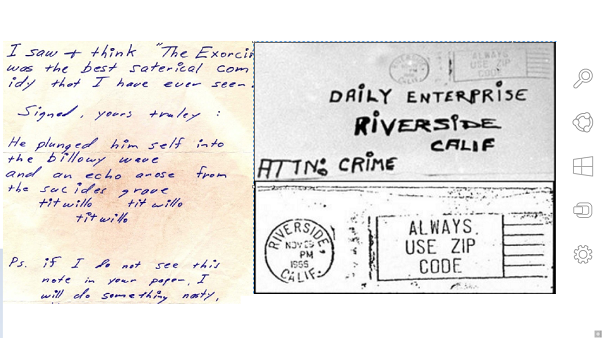 I saw + think "The Exorcis
was the best saterical com
idy that I have ever seen.
Signed, yours truley :
He plunged him self into
the billowy wave
and an echo arose from
the sucides grave
titwillo titwillo
titwillo
Ps. if I do not see this
note in your paper, I
will do something nasty,
ALWAYS
USE ZIP
CODE
DAILY ENTERPRISE
RIVERSIDE
CALIF
ATTN: CRIME
RIVERSIDE,
NOV 29
PM
1966
CALIF.
ALWAYS
USE ZIP
CODE